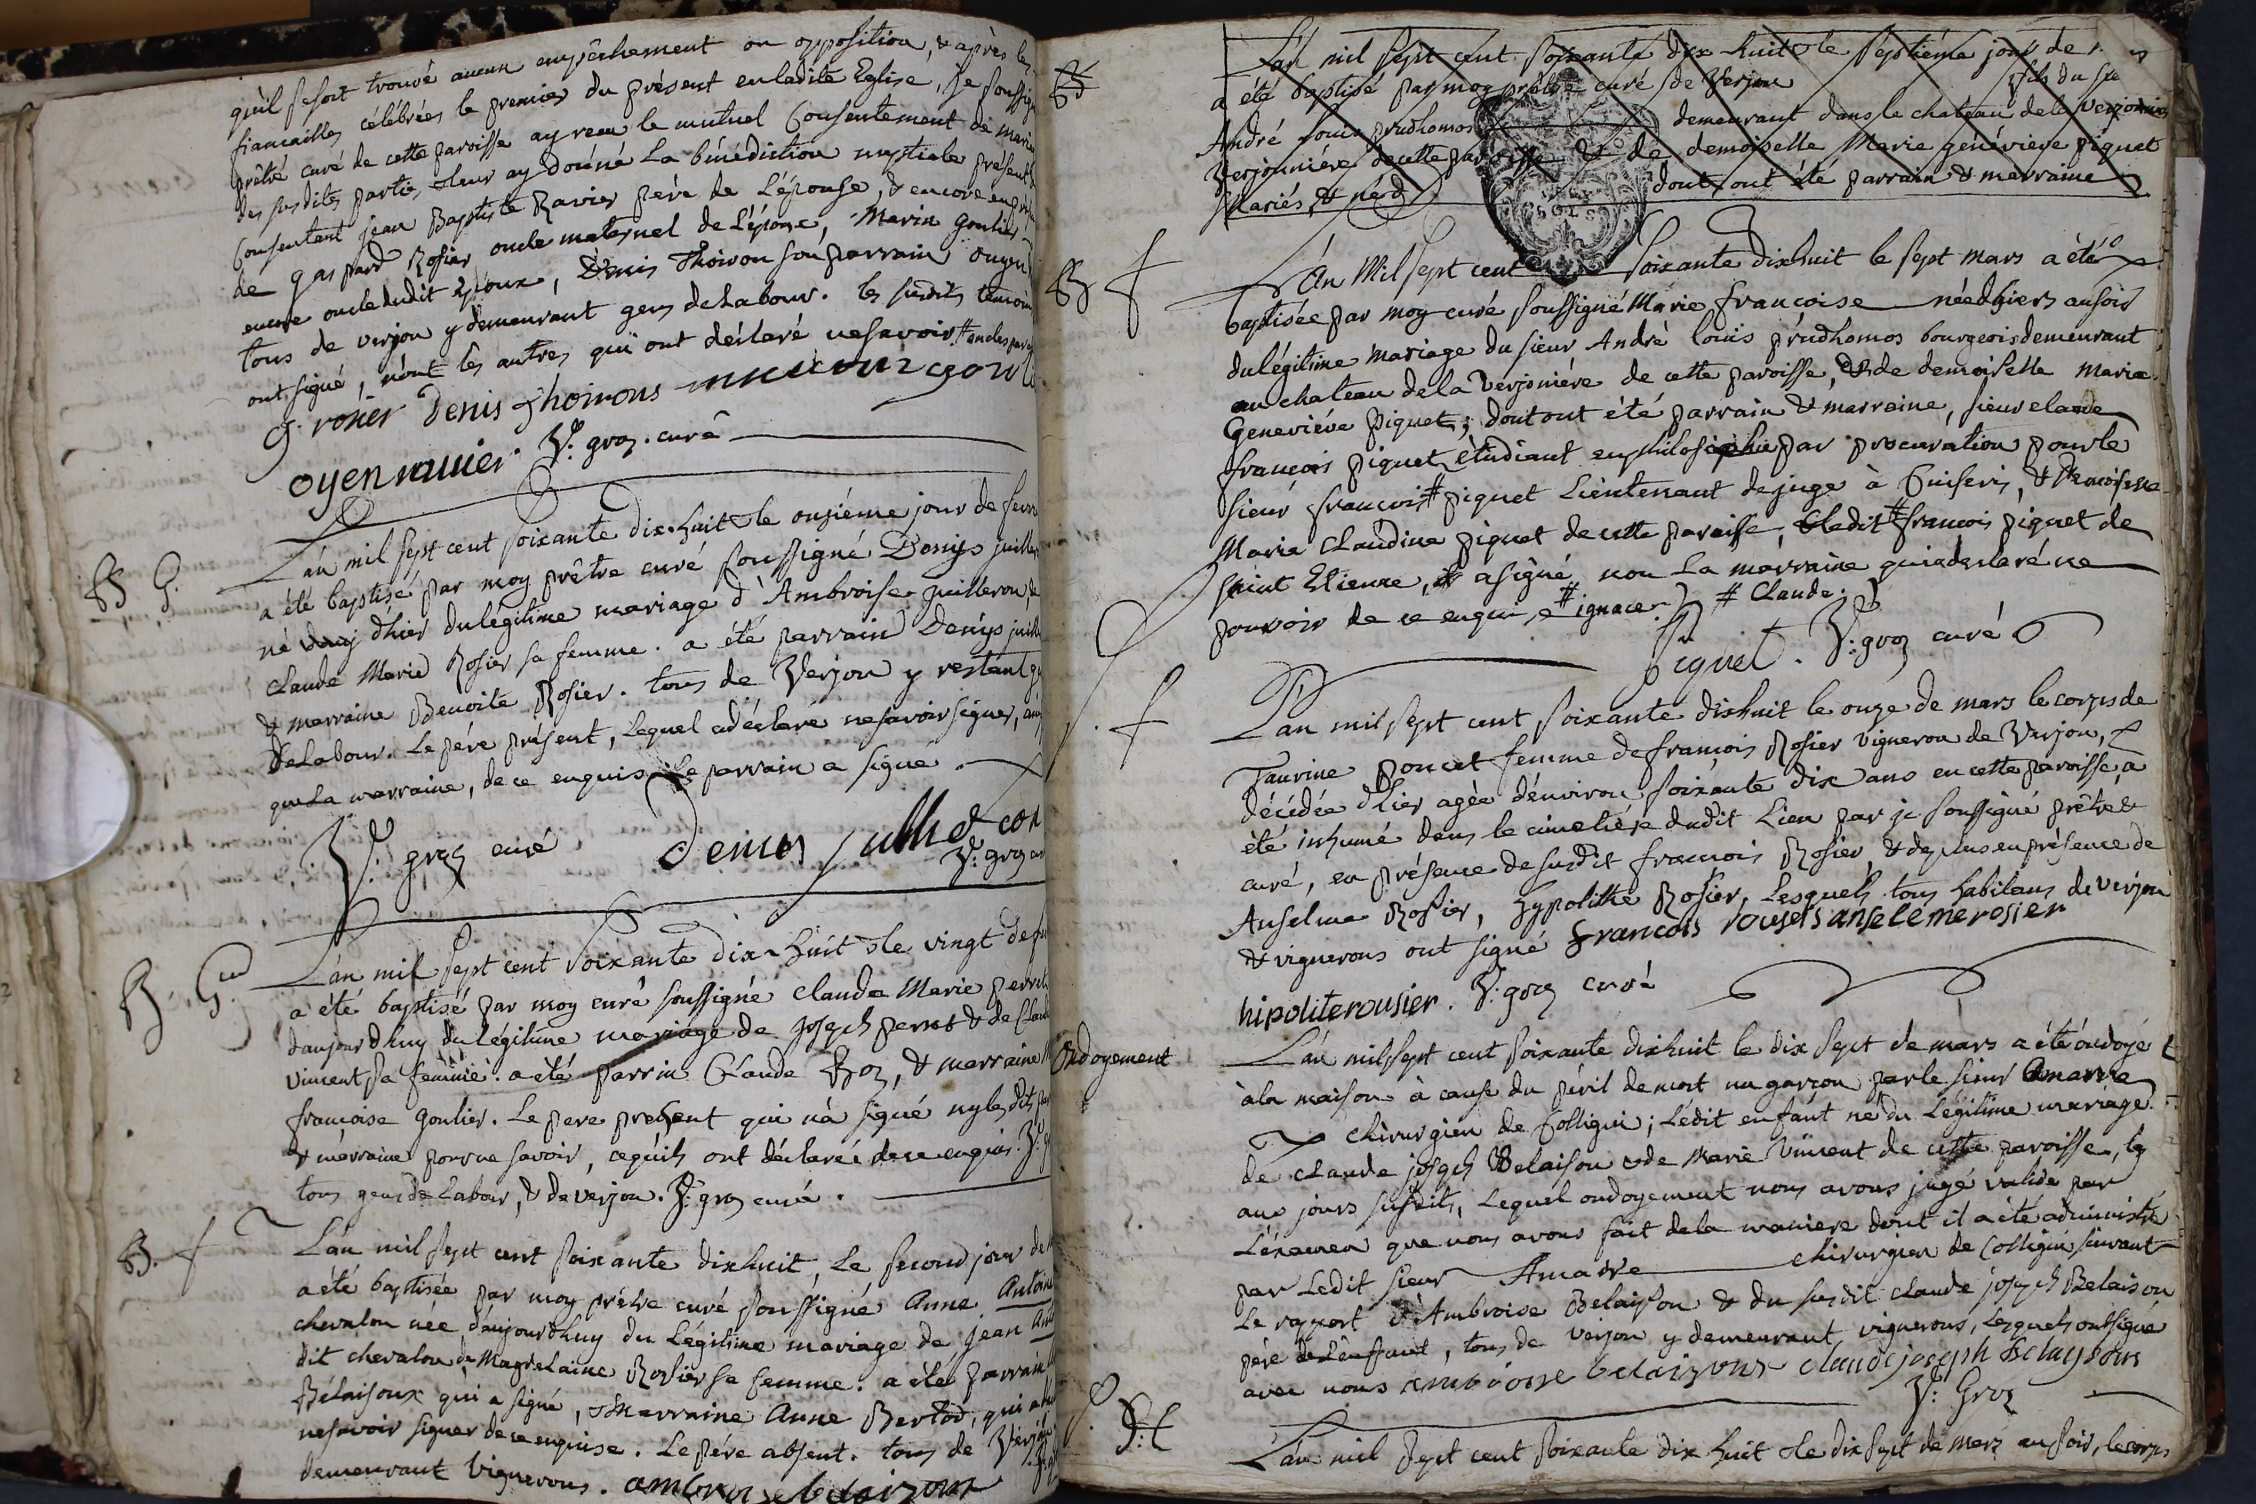 qu'il se soit trouvé aucun empêchement ou opposition, & après les
fiancailles célébrées le premier du présent en ladite Eglise, je soussig
prêtre curé de cette paroisse ay reçu le mutuel Consentement de maria
des susdites parties & leur ay donné La bénédiction nuptiale présent &
Consentant jean Baptiste Ravier père de L'épouse, & encore en pré
de gaspard Rosier oncle maternel de L'épouse, Marin goulier
encore oncle dudit Epoux, Denis Thoivon son parrain oncle
tous de verjon y demeurant gens de Labour. les susdits témoins
ont signé, non les autres qui ont déclaré ne savoir
g: rosier Denis thoivons
oyen ravier. V: groz. curé
B G.
L'an mil sept cent soixante dix-huit & le onziéme jour de fevri
a été baptisé par moy prêtre curé soussigné Denys juille
né d'hier du légitime mariage d'Ambroise juilleron, &
claude Marie Rosier sa femme. a été parrain Denys juill
& marraine Benoite Rosier. tous de Verjon y restant
de Labour. Le père présent, Lequel a déclaré ne savoir signer, ains
que La marraine, de ce enquis. Le parrain a signé.
V: groz curé Denis
V: groz cu
B. G.
L'an mil sept cent soixante dix-huit & le vingt de fe
a été baptisé par moy curé soussigné claude Marie perret
d'aujourdhuy du légitime mariage de joseph perret & de Claud
Vincent sa femme. a été parrin Claude Roz, & marraine
françoise goulier. Le pere present qui n'a signé ny lesdits par
& marraine pour ne savoir, ce qu'ils ont déclaré de ce enquis.
tous gens de Labour, & de verjon. V: groz curé.
B. f
L'an mil sept cent soixante dixhuit, Le second jour de
a été baptisée par moy prêtre curé soussigné Anne Antoine
chevalon née d'aujourdhuy du Légitime mariage de jean
dit chevalon & Magdelaine Rosier sa femme. a été parrain
Bélaisoux qui a signé, & marraine Anne Bertod, qui a
ne savoir signer de ce enquise. Le père absent. tous de Verjon
demeurant Vignerons. ambroise belaizons
L'an mil sept cent soixante dix huit & le septiéme jour de
a été baptisé par moy prêtre curé de Verjon fils du
André Louis prudhomos demeurant dans le chateau de la Verjonière
Verjonniére de cette paroisse & de demoiselle Marie généviève piquet
Mariés, & né d dont ont été parrain & marraine
B f
L'An Mil sept cent soixante dixhuit le sept mars a été
baptisée par moy curé soussigné Marie françoise née d'hier au soir
du légitime mariage du sieur André Louis prudhomos bourgeois demeurant
au chateau de la Verjoniére de cette paroisse, & de demoiselle marie
Geneviéve piquet, dont ont été parrain & marraine, sieur claude
françois piquet étudiant en philosophie par procuration pour le
sieur françois # piquet Lieutenant de juge à Cuiseris, & demoiselle
Marie claudine piquet de cette paroisse, Ledit # françois piquet de
saint Etienne, a signé, non La marraine qui a declaré ne
pouvoir de ce enquise # ignace. # Claude.
piquet. V: groz curé
f
L'an mil sept cent soixante dixhuit le onze de mars le corps de
Taurine poncet femme de françois Rosier vigneron de Verjon,
décédée d'hier agée d'environ soixante dix ans en cette paroisse, a
été inhumé dans le cimetière dudit Lieu par je soussigné prêtre &
curé, en présence de susdit françois Rosier, & de plus en présence de
Anselme Rosier, hypolithe Rosier, Lesquels tous habitans de verjon
& vignerons ont signé françois rousiers anseleme rosier
hipolite rousier. V: groz curé
Ondoyement
L'an mil sept cent soixante dixhuit le dix sept de mars a été ondoyé
à la maison à cause du péril de mort un garçon par le sieur Amarre
chirurgien de Colligni; Ledit enfant né du Légitime mariage
de claude joseph Belaison & de Marie Vincent de cette paroisse, les
aus jours susdits, Lequel ondoyement nous avons jugé valide par
L'éxamen que nous avons fait de la maniere dont il a été administré
par Ledit sieur Amarre chirurgien de Colligni suivant
Le raport d'Ambroise Belaison & du susdit claude joseph Belaison
père de L'enfant, tous de verjon y demeurant vignerons, Lesquels ont signé
avec nous ambroise belaizons claude joseph Belaysons
V: Groz
L'an mil sept cent soixante dix huit & le dix sept de mars au soir, le corps